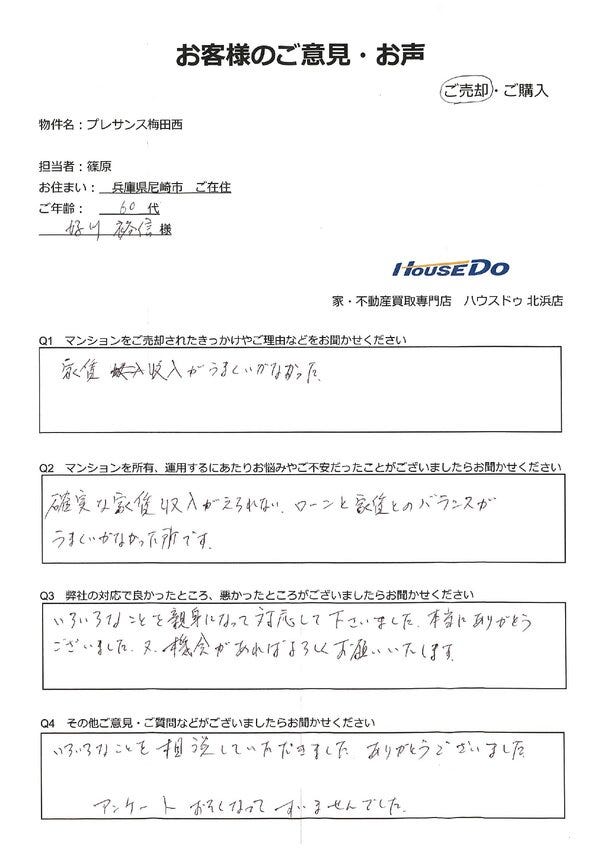 お客様のご意見・お声
ご売却・ご購入
物件名：プレサンス梅田西
担当者：篠原
お住まい： 兵庫県尼崎市 ご在住
ご年齢： 60 代
好川 裕信 様
HOUSEDO
家・不動産買取専門店 ハウスドゥ 北浜店
Q1 マンションをご売却されたきっかけやご理由などをお聞かせください
家賃 収入がうまくいかなかった。
Q2 マンションを所有、運用するにあたりお悩みやご不安だったことがございましたらお聞かせください
確実な家賃収入がえられない、ローンと家賃とのバランスが
うまくいかなかった所です。
Q3 弊社の対応で良かったところ、悪かったところがございましたらお聞かせください
いろいろなことを親身になって対応して下さいました、本当にありがとう
ございました、又、機会があればよろしくお願いいたします。
Q4 その他ご意見・ご質問などがございましたらお聞かせください
いろいろなことを相談していただきました ありがとうございました
アンケート おそくなって すいませんでした。